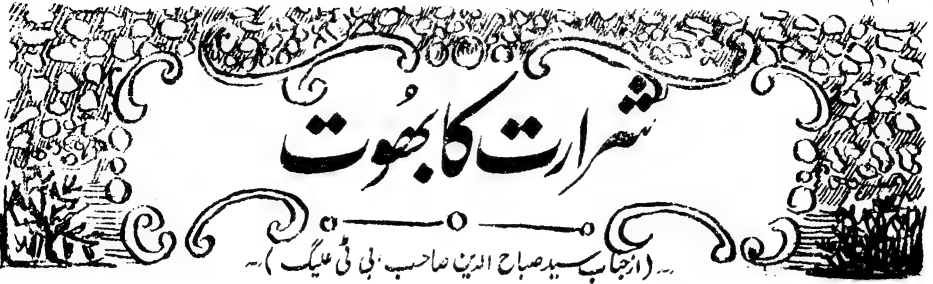 شرارت کا بھُوت
(از جناب سید صباح الدین صاحب، بی ٹی علیگ)